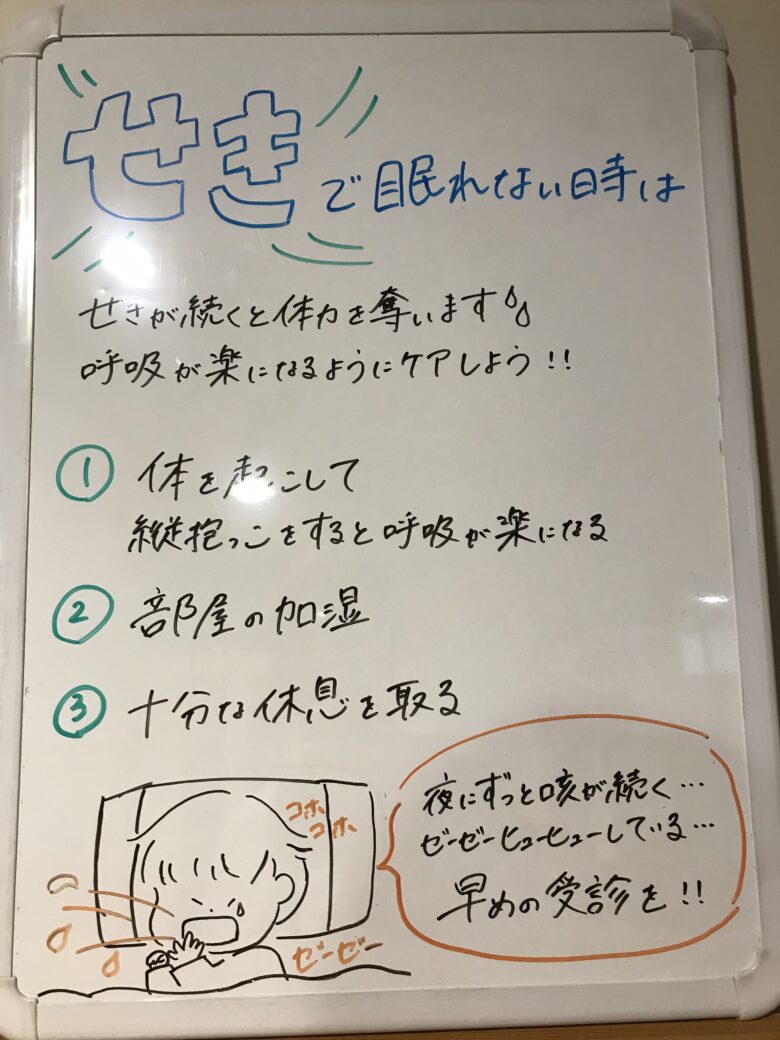 せきで眠れない時は
せきが続くと体力を奪います
呼吸が楽になるようにケアしよう!!
① 体を起こして
縦抱っこをすると呼吸が楽になる
② 部屋の加湿
③ 十分な休息を取る
夜にずっと咳が続く…
ゼーゼーヒューヒューしている…
早めの受診を!!
コホ
コホ
ゼーゼー